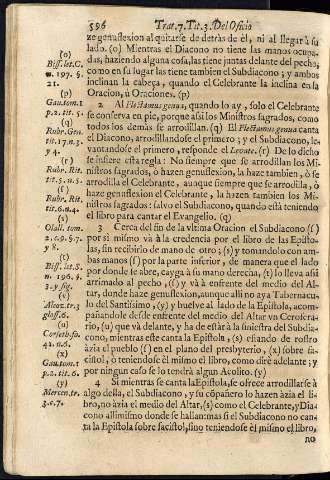 596 Trat.7. Tit.3. Del Oficio
(o)
Biss. let. C.
n. 197. §.
21.
(p)
Gau. tom. 1
p. 2. tit. 5.
(q)
Rubr. Gen.
tit. 17. n. 3.
4.
(r)
Rubr. Rit.
tit. 5. n. 5.
(s)
Rubr. Rit.
tit. 6. n. 4.
(s)
Olall. tom.
2. c. 9. §. 7.
(s)
Biss. let. S.
n. 196. §.
(s)
(u)
42. n. 6.
(x)
Gau. tom. 1
p. 2. tit. 6.
(y)
3. c. 7.
ze genuflexion al quitarse de detràs de èl, ni al llegar à su
lado. (o) Mientras el Diacono no tiene las manos ocupa-
das, haziendo alguna cosa, las tiene juntas delante del pecho,
como en su lugar las tiene tambien el Subdiacono; y ambos
inclinan la cabeça, quando el Celebrante la inclina en la
Oracion, ù Oraciones. (p)
2 Al Flectamus genua, quando lo ay, solo el Celebrante
se conserva en pie, porque assi los Ministros sagrados, como
todos los demàs se arrodillan. (q) El Flectamus genua canta
el Diacono, arrodillandose el primero; y el Subdiacono, le-
vantandose el primero, responde el Levate. (r) De lo dicho
se infiere esta regla: No siempre que se arrodillan los Mi-
nistros sagrados, ò hazen genuflexion, la haze tambien, ò se
arrodilla el Celebrante, aunque siempre que se arrodilla, ò
haze genuflexion el Celebrante, la hazen tambien los Mi-
nistros sagrados: salvo el Subdiacono, quando està teniendo
el libro para cantar el Evangelio. (q)
3 Cerca del fin de la vltima Oracion el Subdiacono (s)
por si mismo và à la credencia por el libro de las Episto-
las, sin recibirlo de mano de otro; (s) y tomandolo con am-
bas manos (s) por la parte inferior, de manera que el lado
por donde se abre, cayga à su mano derecha, (t) lo lleva assi
arrimado al pecho, (s) y và à enfrente del medio del Al-
tar, donde haze genuflexion, aunque alli no aya Tabernacu-
lo del Santissimo, (y) y buelve al lado de la Epistola, acom-
pañandole desde enfrente del medio del Altar vn Cerofera-
rio, (u) que và delante, y ha de estàr à la siniestra del Subdia-
cono, mientras este canta la Epistola, (s) estando de rostro
àzia el pueblo (s) en el plano del presbyterio, (x) sobre fa-
cistol, ò teniendose èl mismo el libro, como dirè adelante; y
por ningun caso se lo tendrà algun Acolito. (y)
4 Si mientras se canta la Epistola, se ofrece arrodillarse à
algo della, el Subdiacono, y su còpañero lo hazen àzia el li-
bro, no àzia el medio del Altar, (s) como el Celebrante, y Dia-
cono alli mismo donde se hallan: mas si el Subdiacono no can-
ta la Epistola sobre facistol, sino teniendose èl mismo el libro,
no